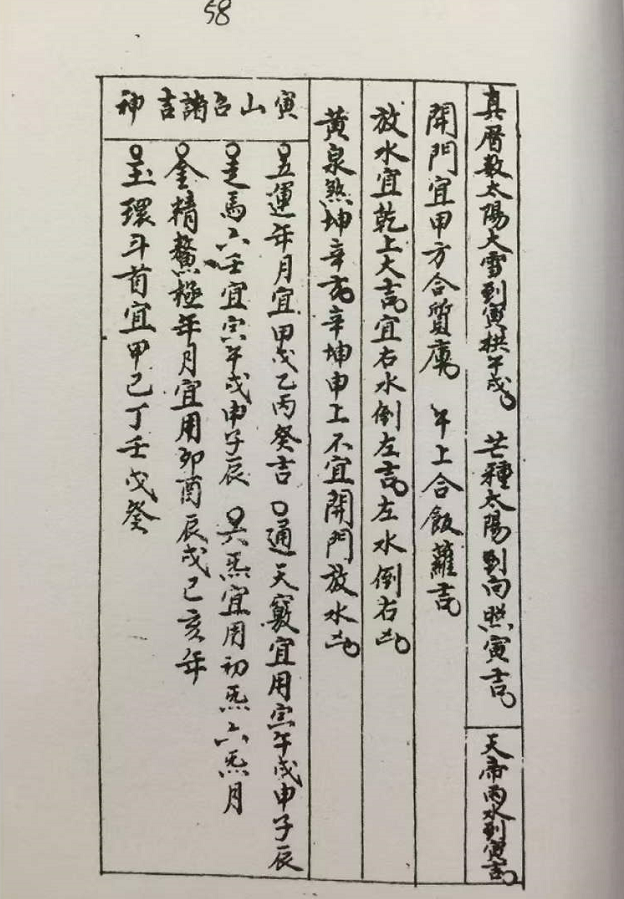 58
真曆数太陽大雪到寅拱午戌。 芒種太陽到向照寅吉。
天帝雨水到寅吉。
開門宜甲方合質庫。 午上合飯蘿吉。
放水宜乾上大吉。宜右水倒左吉。左水倒右凶。
黄泉煞坤辛亥。辛坤申上不宜開門放水凶。
寅山召諸吉神
○五運年月宜甲戊乙丙癸吉 ○通天竅宜用寅午戌申子辰
○走馬六壬宜寅午戌申子辰 ○炁宜用初炁六炁月
○金精鰲極年月宜用卯酉辰戌巳亥年
○玉環斗首宜甲己丁壬戊癸